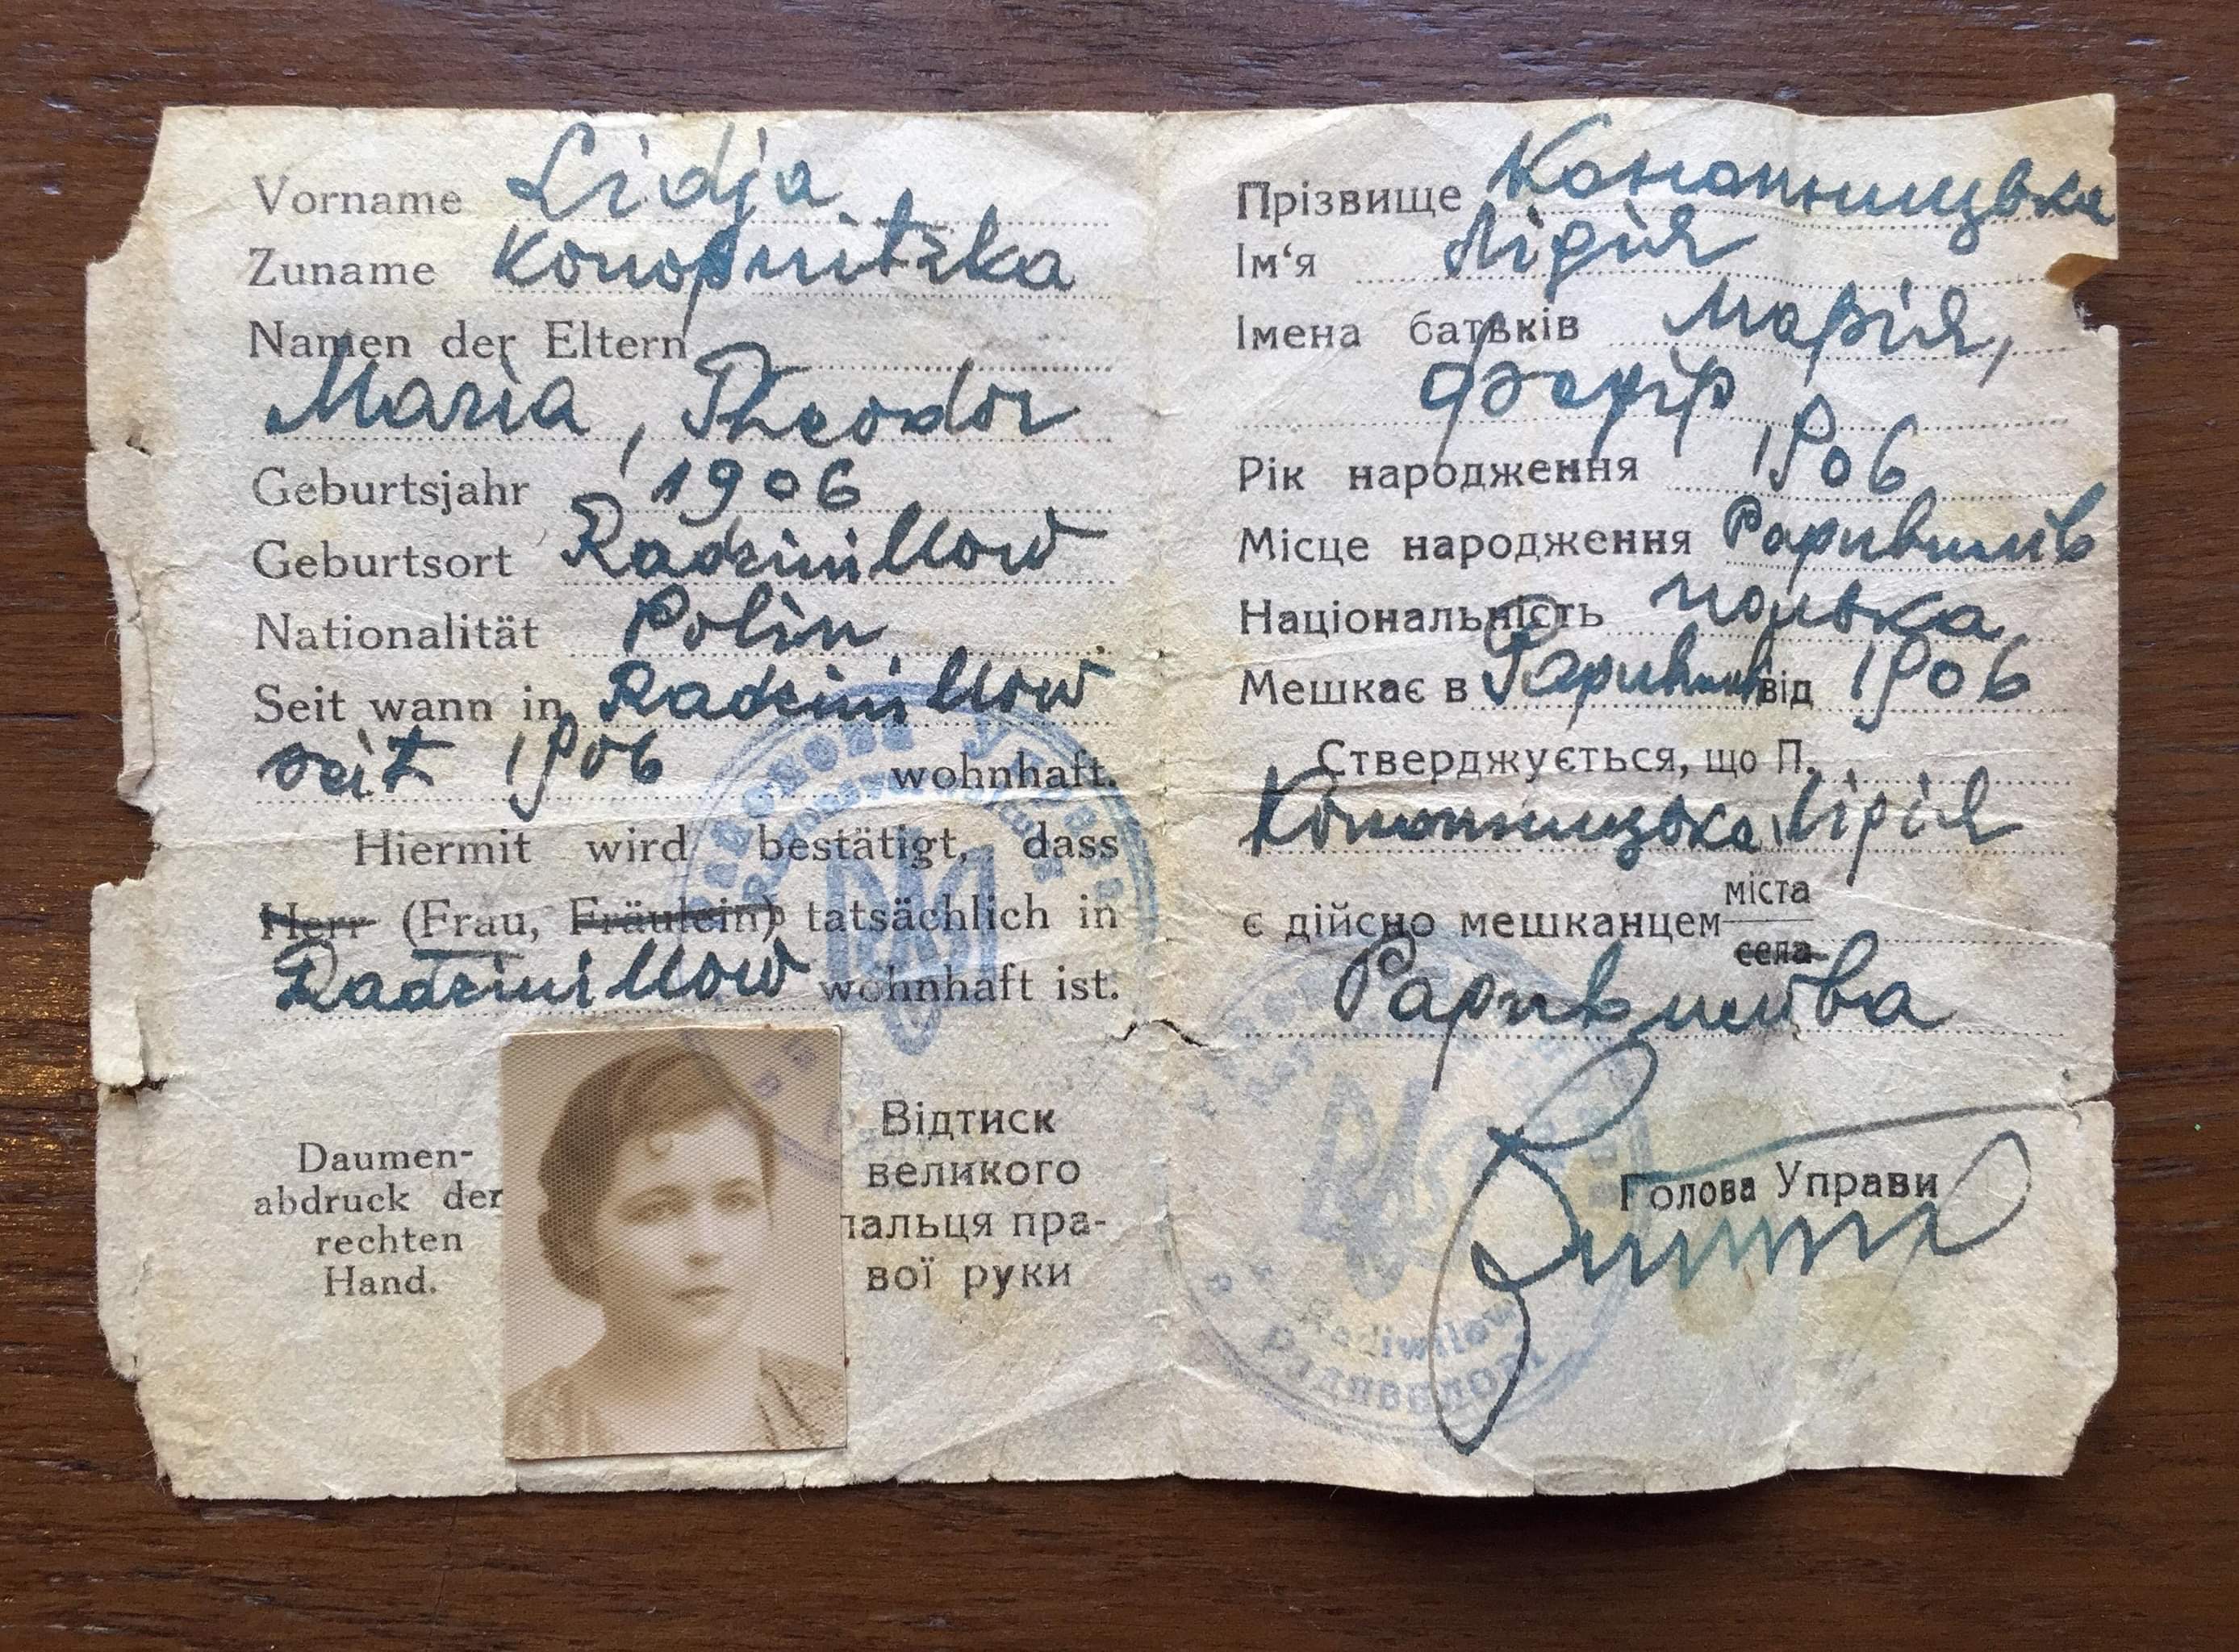 Vorname Lidja
Zuname Konopnitzka
Namen der Eltern
Maria, Theodor
Geburtsjahr 1906
Geburtsort Radziwillow
Nationalität Polin
Seit wann in Radziwillow
seit 1906 wohnhaft.
Hiermit wird bestätigt, dass
Herr (Frau, Fräulein) tatsächlich in
Radziwillow wohnhaft ist.
Daumen-
abdruck der
rechten
Hand.
Відтиск
великого
пальця пра-
вої руки
Прізвище Конопницька
Ім‘я Лідія
Імена батьків Марія,
Федір
Рік народження 1906
Місце народження Радивилів
Національність полька
Мешкає в Радивилів від 1906
Стверджується, що П.
Конопницька Лідія
є дійсно мешканцем міста
села
Радивилова
Голова Управи
Radiwilow